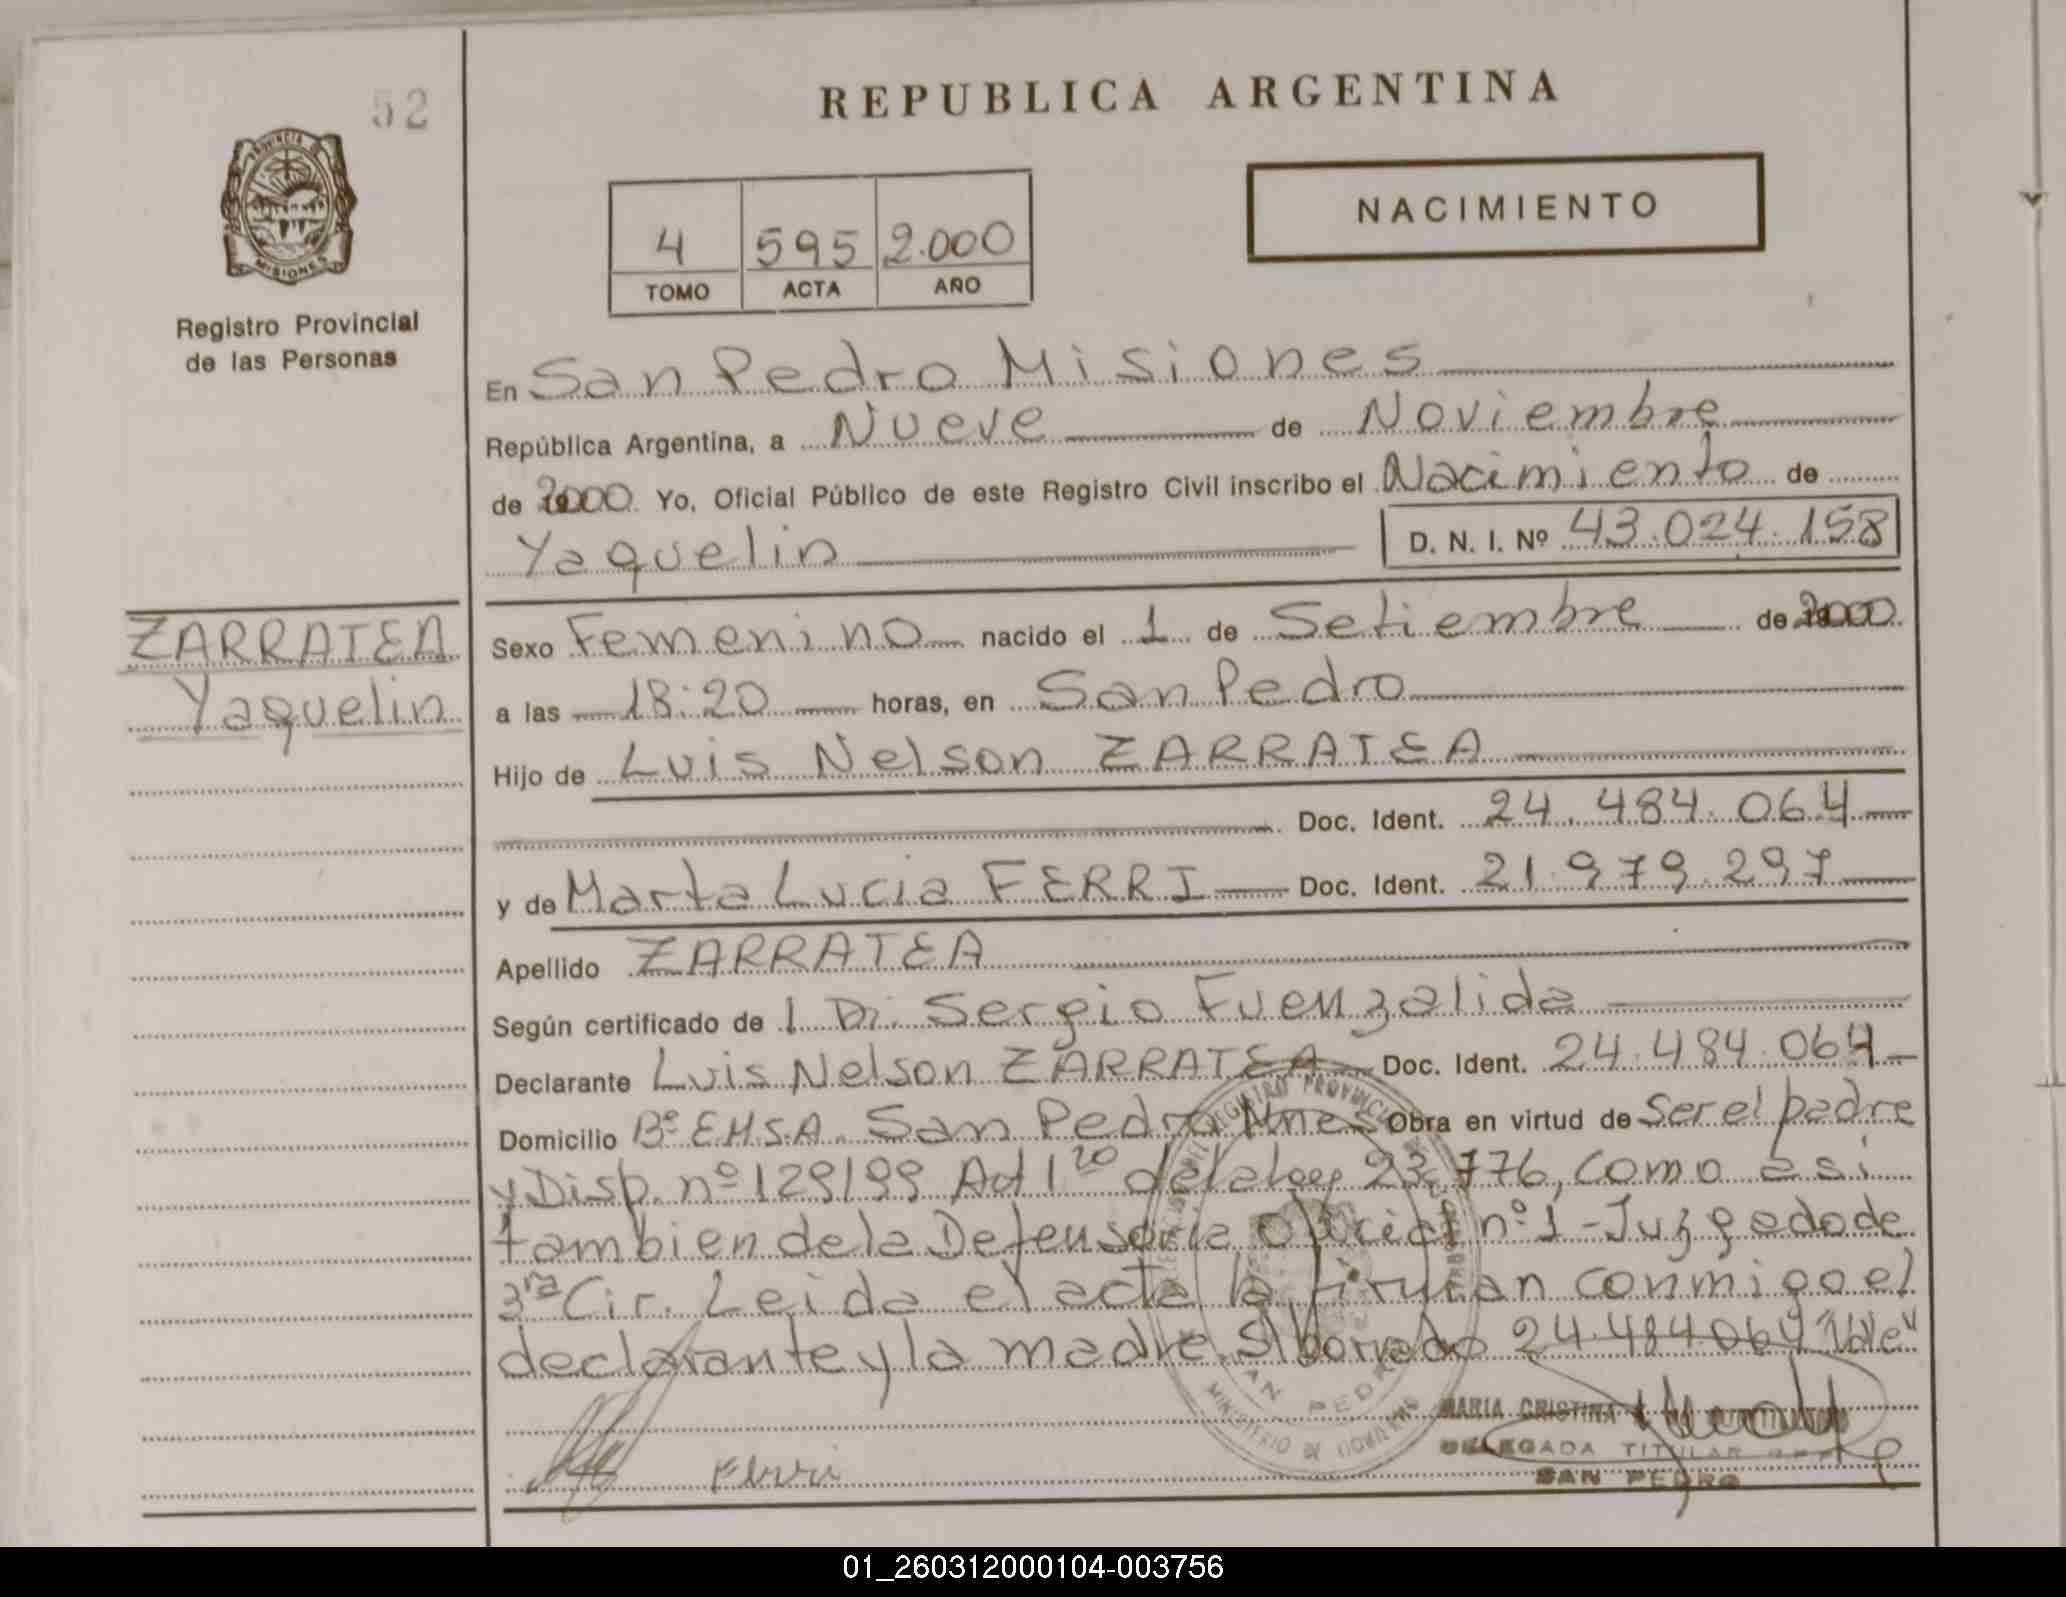 52
REPUBLICA ARGENTINA
PROVINCIA DE
MISIONES
Registro Provincial
de las Personas
4 595 2.000
TOMO ACTA AÑO
NACIMIENTO
En San Pedro Misiones
República Argentina, a Nueve de Noviembre
de 2000 Yo, Oficial Público de este Registro Civil inscribo el Nacimiento de
Yaquelin D. N. I. Nº 43.024.158
ZARRATEA
Yaquelin
Sexo Femenino nacido el 1 de Setiembre de 2000
a las 18:20 horas, en San Pedro
Hijo de Luis Nelson ZARRATEA
Doc. Ident. 24.484.064
y de Marta Lucia FERRI Doc. Ident. 21.979.297
Apellido ZARRATEA
Según certificado de Sergio Fuenzalida
Declarante Luis Nelson ZARRATEA Doc. Ident. 24.484.064
Domicilio Bº EMSA. San Pedro Mnes Obra en virtud de ser el padre
y Disp. nº 129/99 de la ley 23.776, como asi
tambien de la Defensoria Oficial nº 1 - Juzgado de
3ra Cir. Leida el acta la firman conmigo el
declarante y la madre. S/borrado 24.484.064 "Vale"
MARIA CRISTINA
DELEGADA TITULAR
SAN PEDRO
Ferri
REGISTRO PROVINCIAL
SAN PEDRO
MINISTERIO DE GOBIERNO
01_260312000104-003756